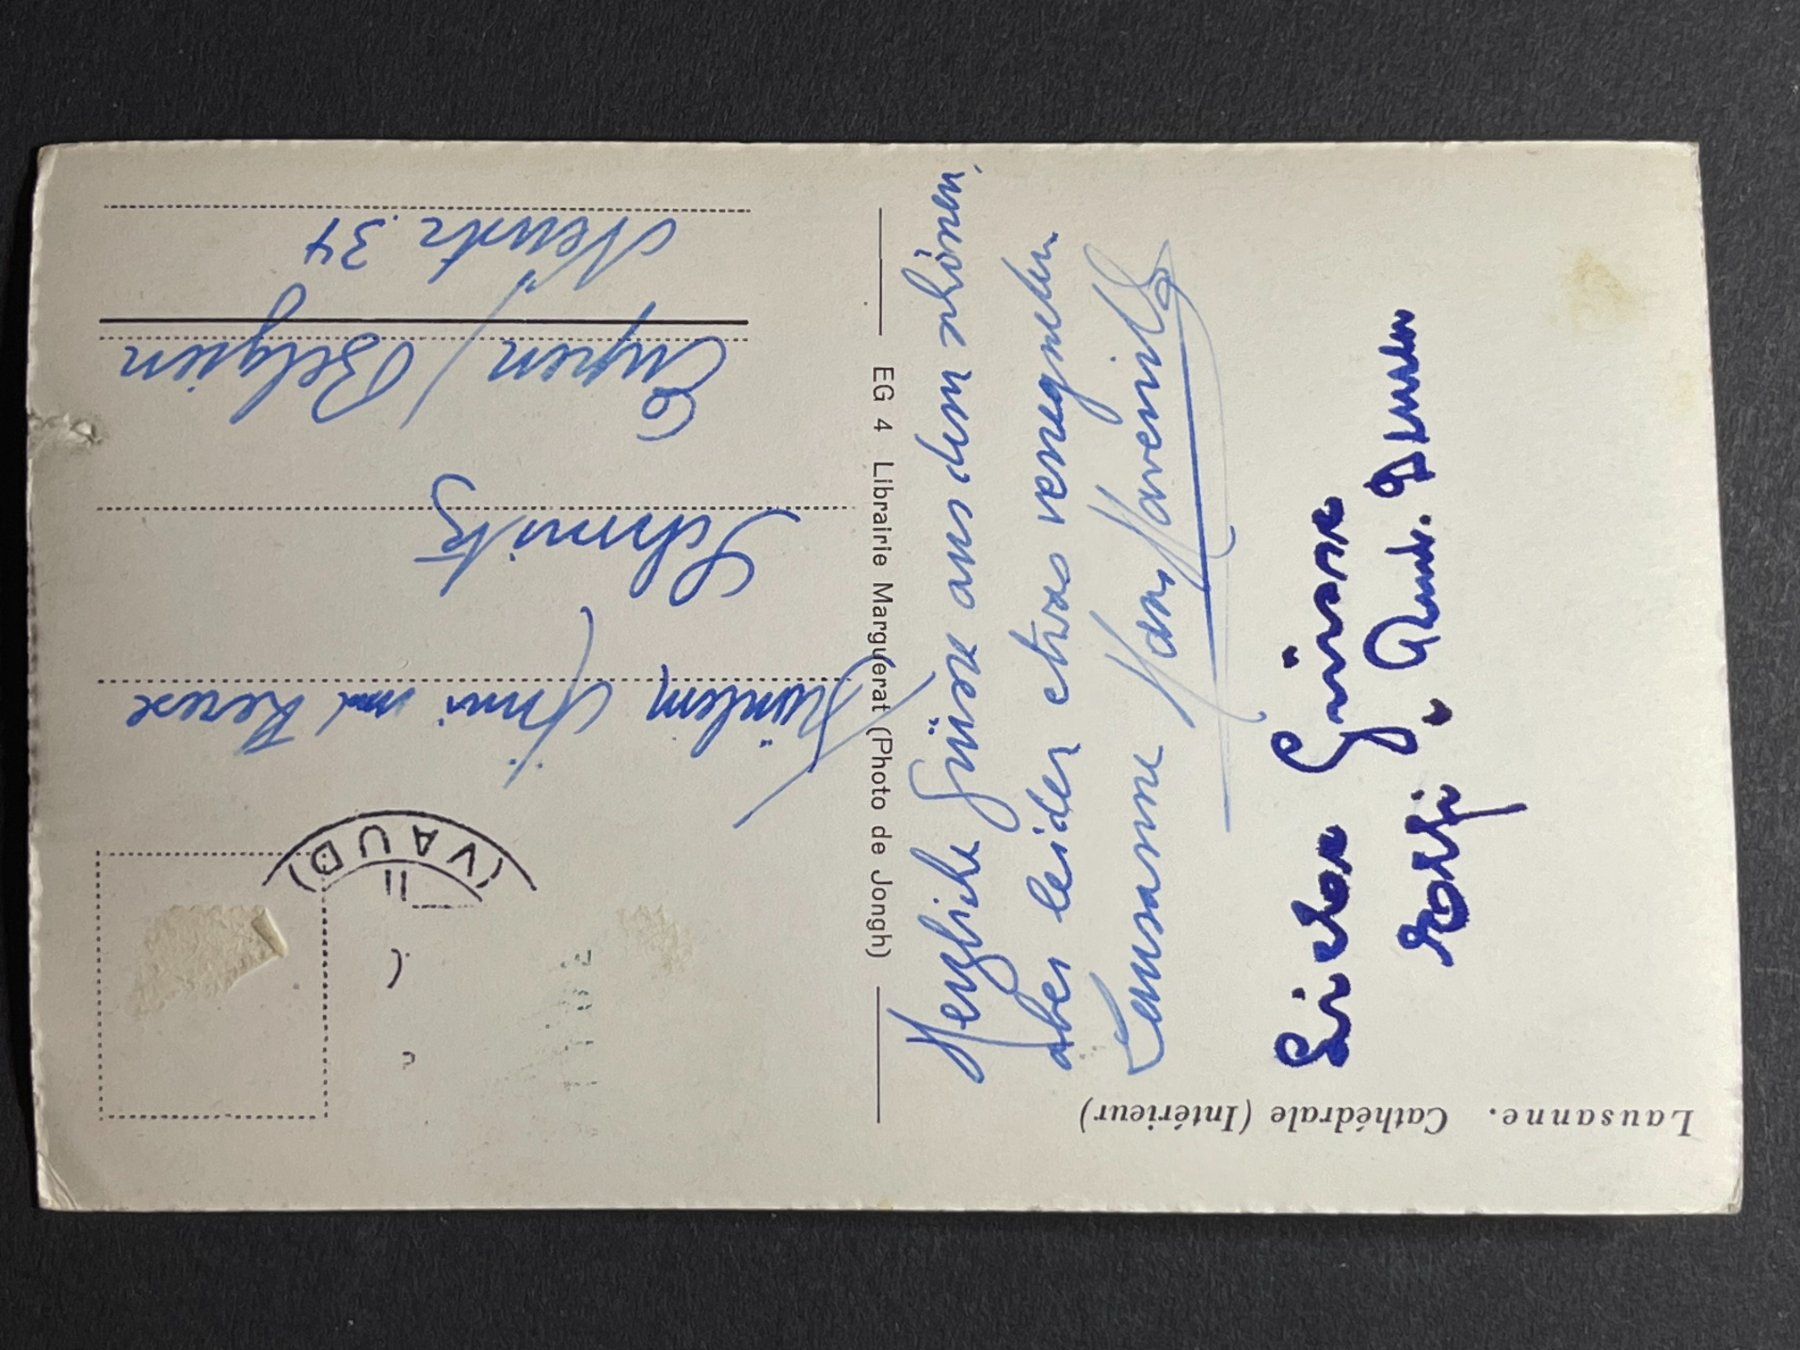 Lausanne. Cathédrale (Intérieur)
Herzliche Grüsse aus dem schönen,
aber leider etwas verregneten
Lausanne Hans
Liebe Grüsse
EG 4 Librairie Marguerat (Photo de Jongh)
(VAUD)
Fräulein Anni und Therese
Schmitz
Eupen / Belgien
Neustr. 34